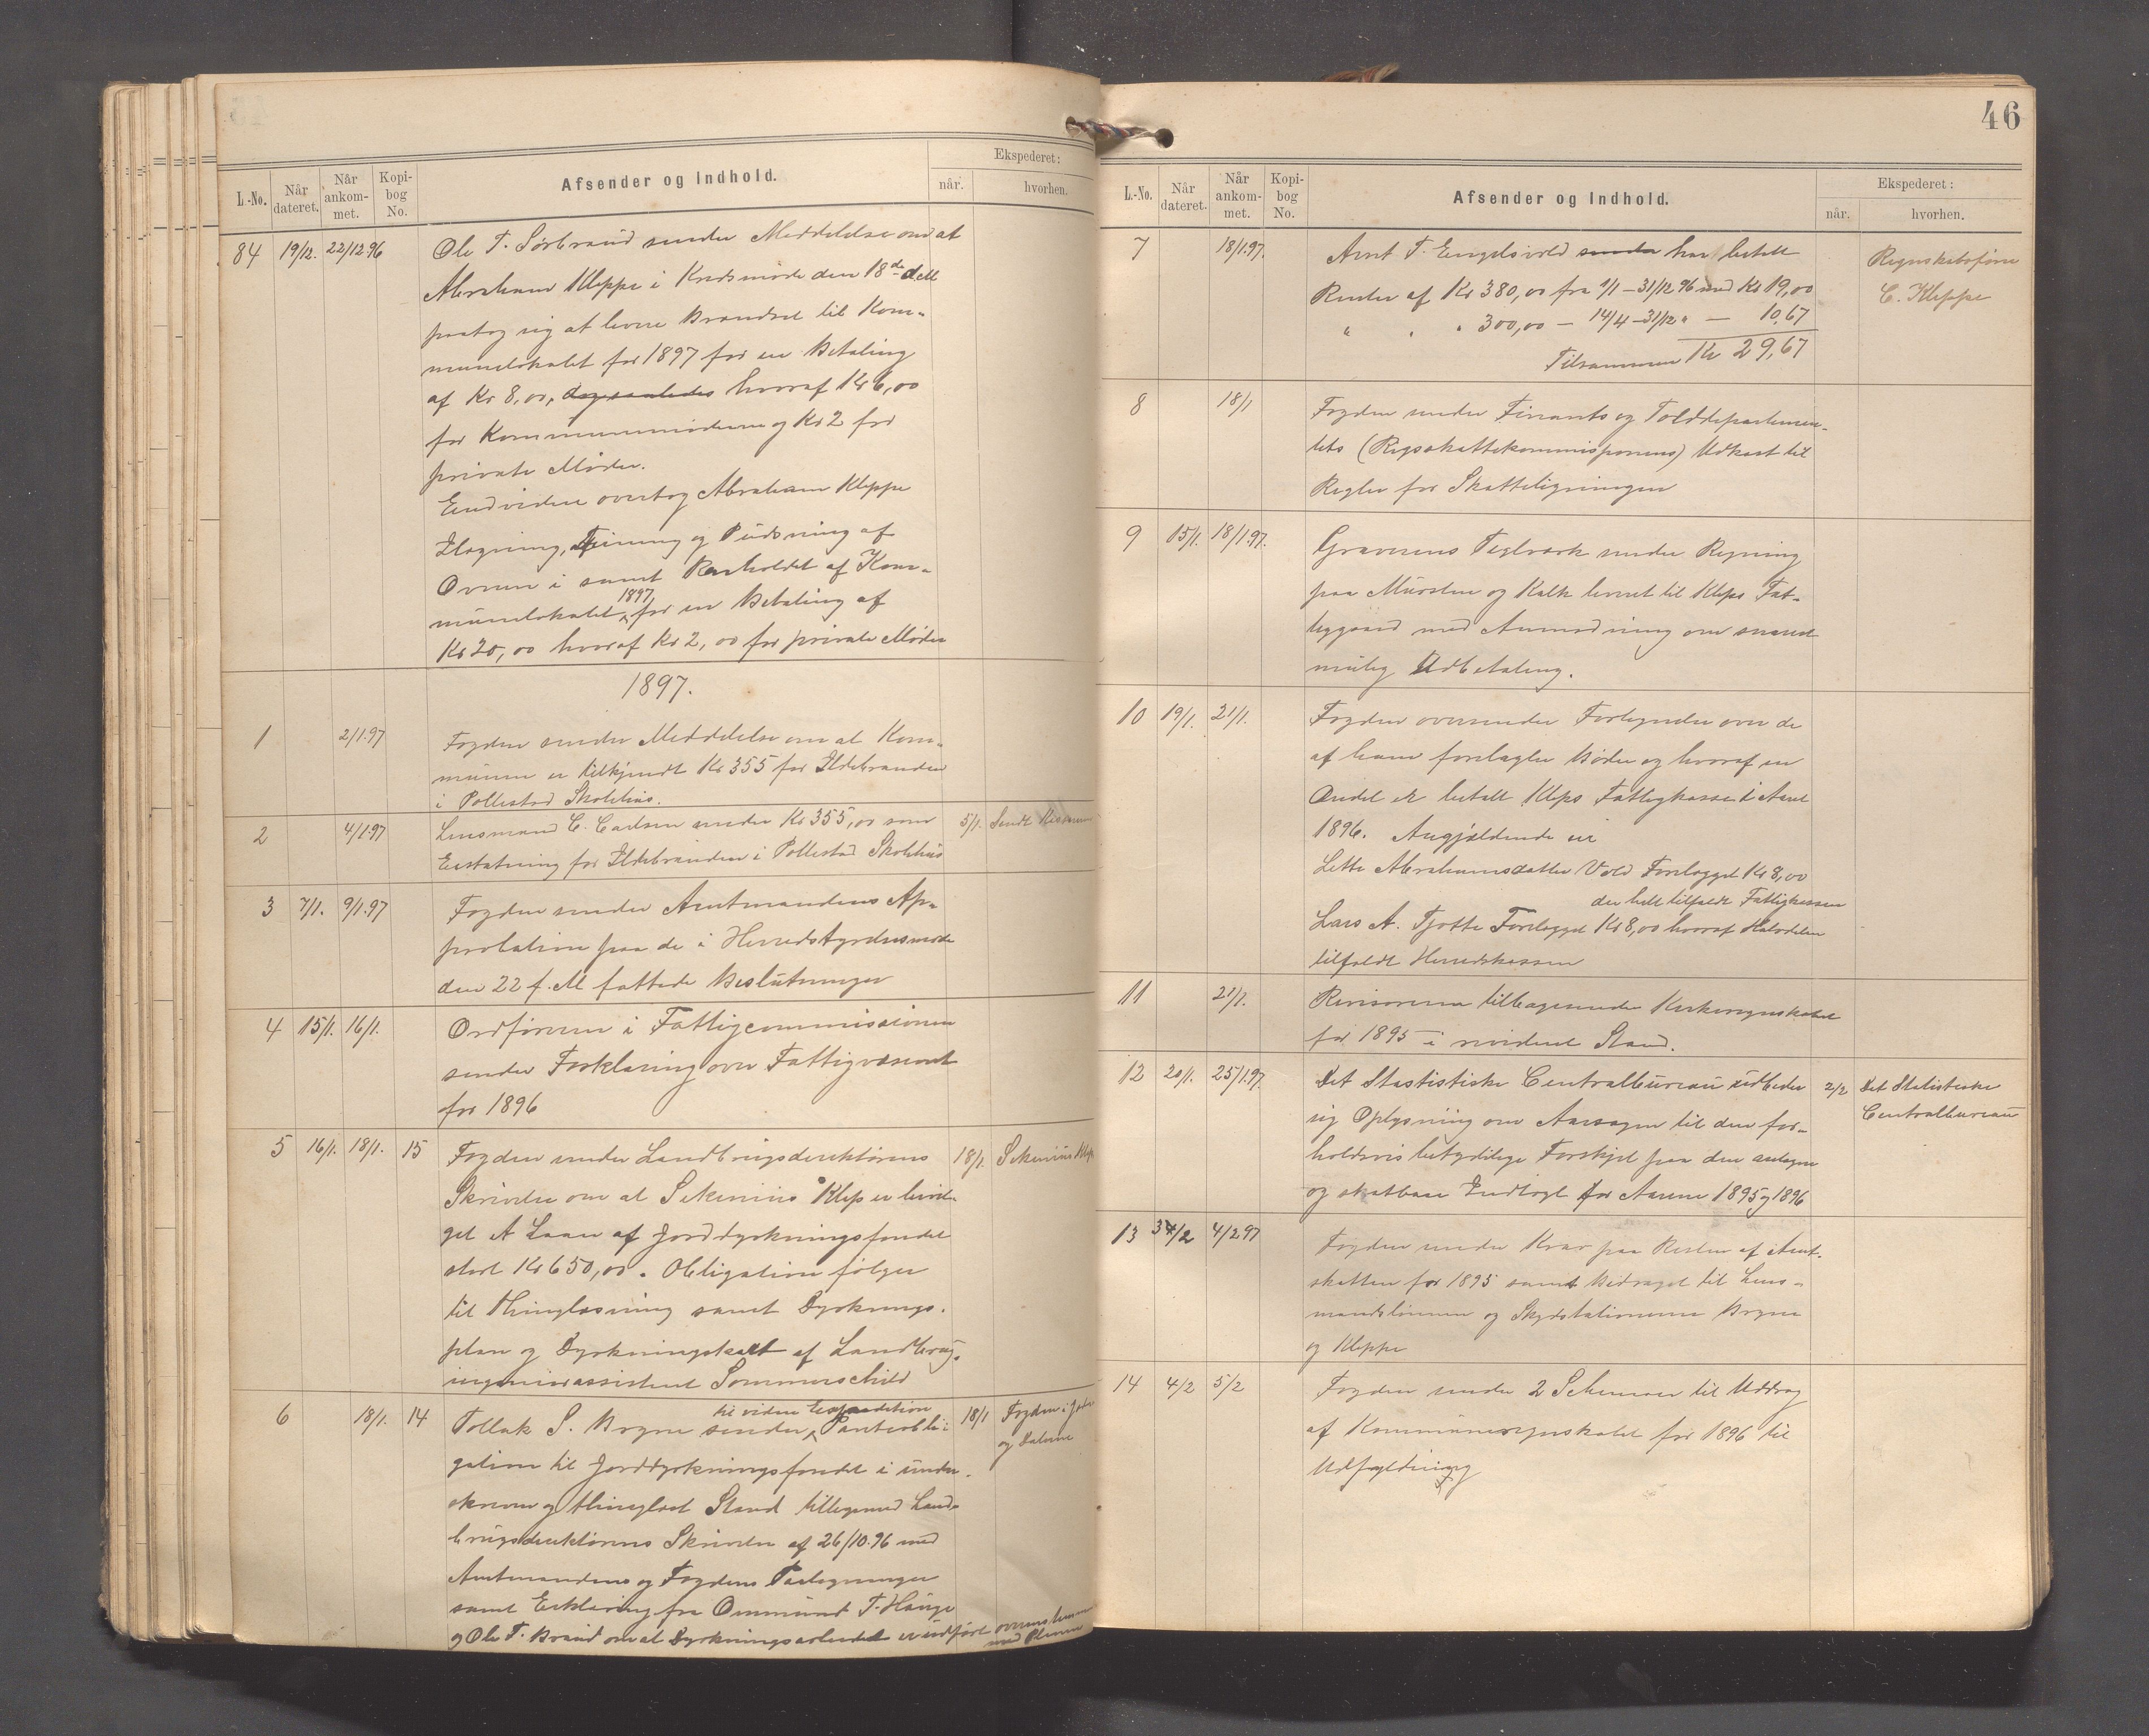 L.-No. Når dateret. Når ankommet. Kopibog No. Afsender og Indhold. Ekspederet: når. hvorhen.
84 19/12. 22/12 96 Ole T. Sørbraud sender Meddelelse om at
Abraham Kleppe i Kredsmøde den 18de ds
paatog sig at levere Brændsel til Kom-
munelokalet for 1897 for en Betaling
af Kr 8,00, hvoraf Kr 6,00
for Kommunemøderne og Kr 2 for
private Møder.
Endvidere overtog Abraham Kleppe
Ilægning, Feining og Pudsning af
Ovnen i samt Renholdet af Kom-
munelokalet 1897 for en Betaling af
Kr 20,00 hvoraf Kr 2,00 for private Møder
1897.
1 2/1.97 Fogden sender Meddelelse om at Kom-
munen er tilkjendt Kr 355 for Ildebranden
i Pollestad Skolehus.
2 4/1.97 Lensmand C. Carlsen sender Kr 355,00 som 5/1. Sendt
Erstatning for Ildebranden i Pollestad Skolehus
3 7/1. 9/1.97 Fogden sender Amtmandens Ap-
probation paa de i Herredsstyrelsesmøde
den 22 f. M fattede Beslutninger
4 15/1. 16/1. Ordføreren i Fattigcommissionen
sender Forklaring over Fattigvæsenet
for 1896
5 16/1. 18/1. 15 Fogden sender Landbrugsdirektørens 18/1. Sekenius Klep
Skrivelse om at Sekenius Klep er bevil-
get A Laan af Jorddyrkningsfondet
stort Kr 650,00. Obligation følger
til Thinglæsning samt Dyrknings-
plan og Dyrkningskart af Landbrugs-
ingeniørassistent Sommerschild
6 18/1. 14 Tollak S. Bryne sender til videre Expedition Pantobli- 18/1 Fogden i Jæderen
gation til Jorddyrkningsfondet i under- og Dalerne
skreven og thinglæst Stand tilligemed Land-
brugsdirektørens Skrivelse af 26/10.96 med
Amtmandens og Fogdens Paategninger
samt Erklæring fra Ommund T. Hauge
og Ole T. Braud om at Dyrkningsarbeidet er udført overenstemm
med Planen
46
L.-No. Når dateret. Når ankommet. Kopibog No. Afsender og Indhold. Ekspederet: når. hvorhen.
7 18/1.97. Arnt T. Engelsvold sender har betalt Regnskabsfører
Renter af Kr 380,00 fra 1/1 – 31/12 96 med Kr 19,00 C. Kleppe
" " " 300,00 – 14/4 – 31/12 " – 10,67
Tilsammen Kr 29,67
8 18/1 Fogden sender Finants og Tolddepartemen-
tets (Rigsskattekommissionens) Udkast til
Regler for Skatteligningen
9 15/1. 18/1.97. Graverens Teglværk sender Regning
paa Mursten og Kalk leveret til Kleps Fat-
tiggaard med Anmodning om snarest
mulig Udbetaling.
10 19/1. 21/1. Fogden oversender Fortegnelse over de
af ham forelagte Bøder og hvoraf en
Andel er betalt Kleps Fattigkasse i Aaret
1896. Angjældende er
Lette Abrahamsdatter Vold Forelagget Kr 8,00
der helt tilfaldt Fattigkassen
Lars A. Tjøtta Forelagget Kr 8,00 hvoraf Halvdelen
tilfaldt Herredskassen
11 21/1. Revisorerne tilbagesender Kirkeregnskabet
for 1895 i revideret Stand.
12 20/1. 25/1.97. Det Stastistiske Centralbureau udbeder 2/2 Det Statistiske
sig Oplysning om Aarsagen til den for- Centralbureau
holdsvis betydelige Forskjel paa den antagne
og skatbare Indtægt for Aarene 1895 og 1896
13 34/2 4/2 97 Fogden sender Krav paa Resten af Amt-
skatten for 1895 samt Bidraget til Lens-
mandslønnen og Skydsstationerne Bryne
og Kleppe
14 4/2 5/2 Fogden sender 2 Schemaer til Uddrag
af Kommuneregnskabet for 1896 til
Udfyldning